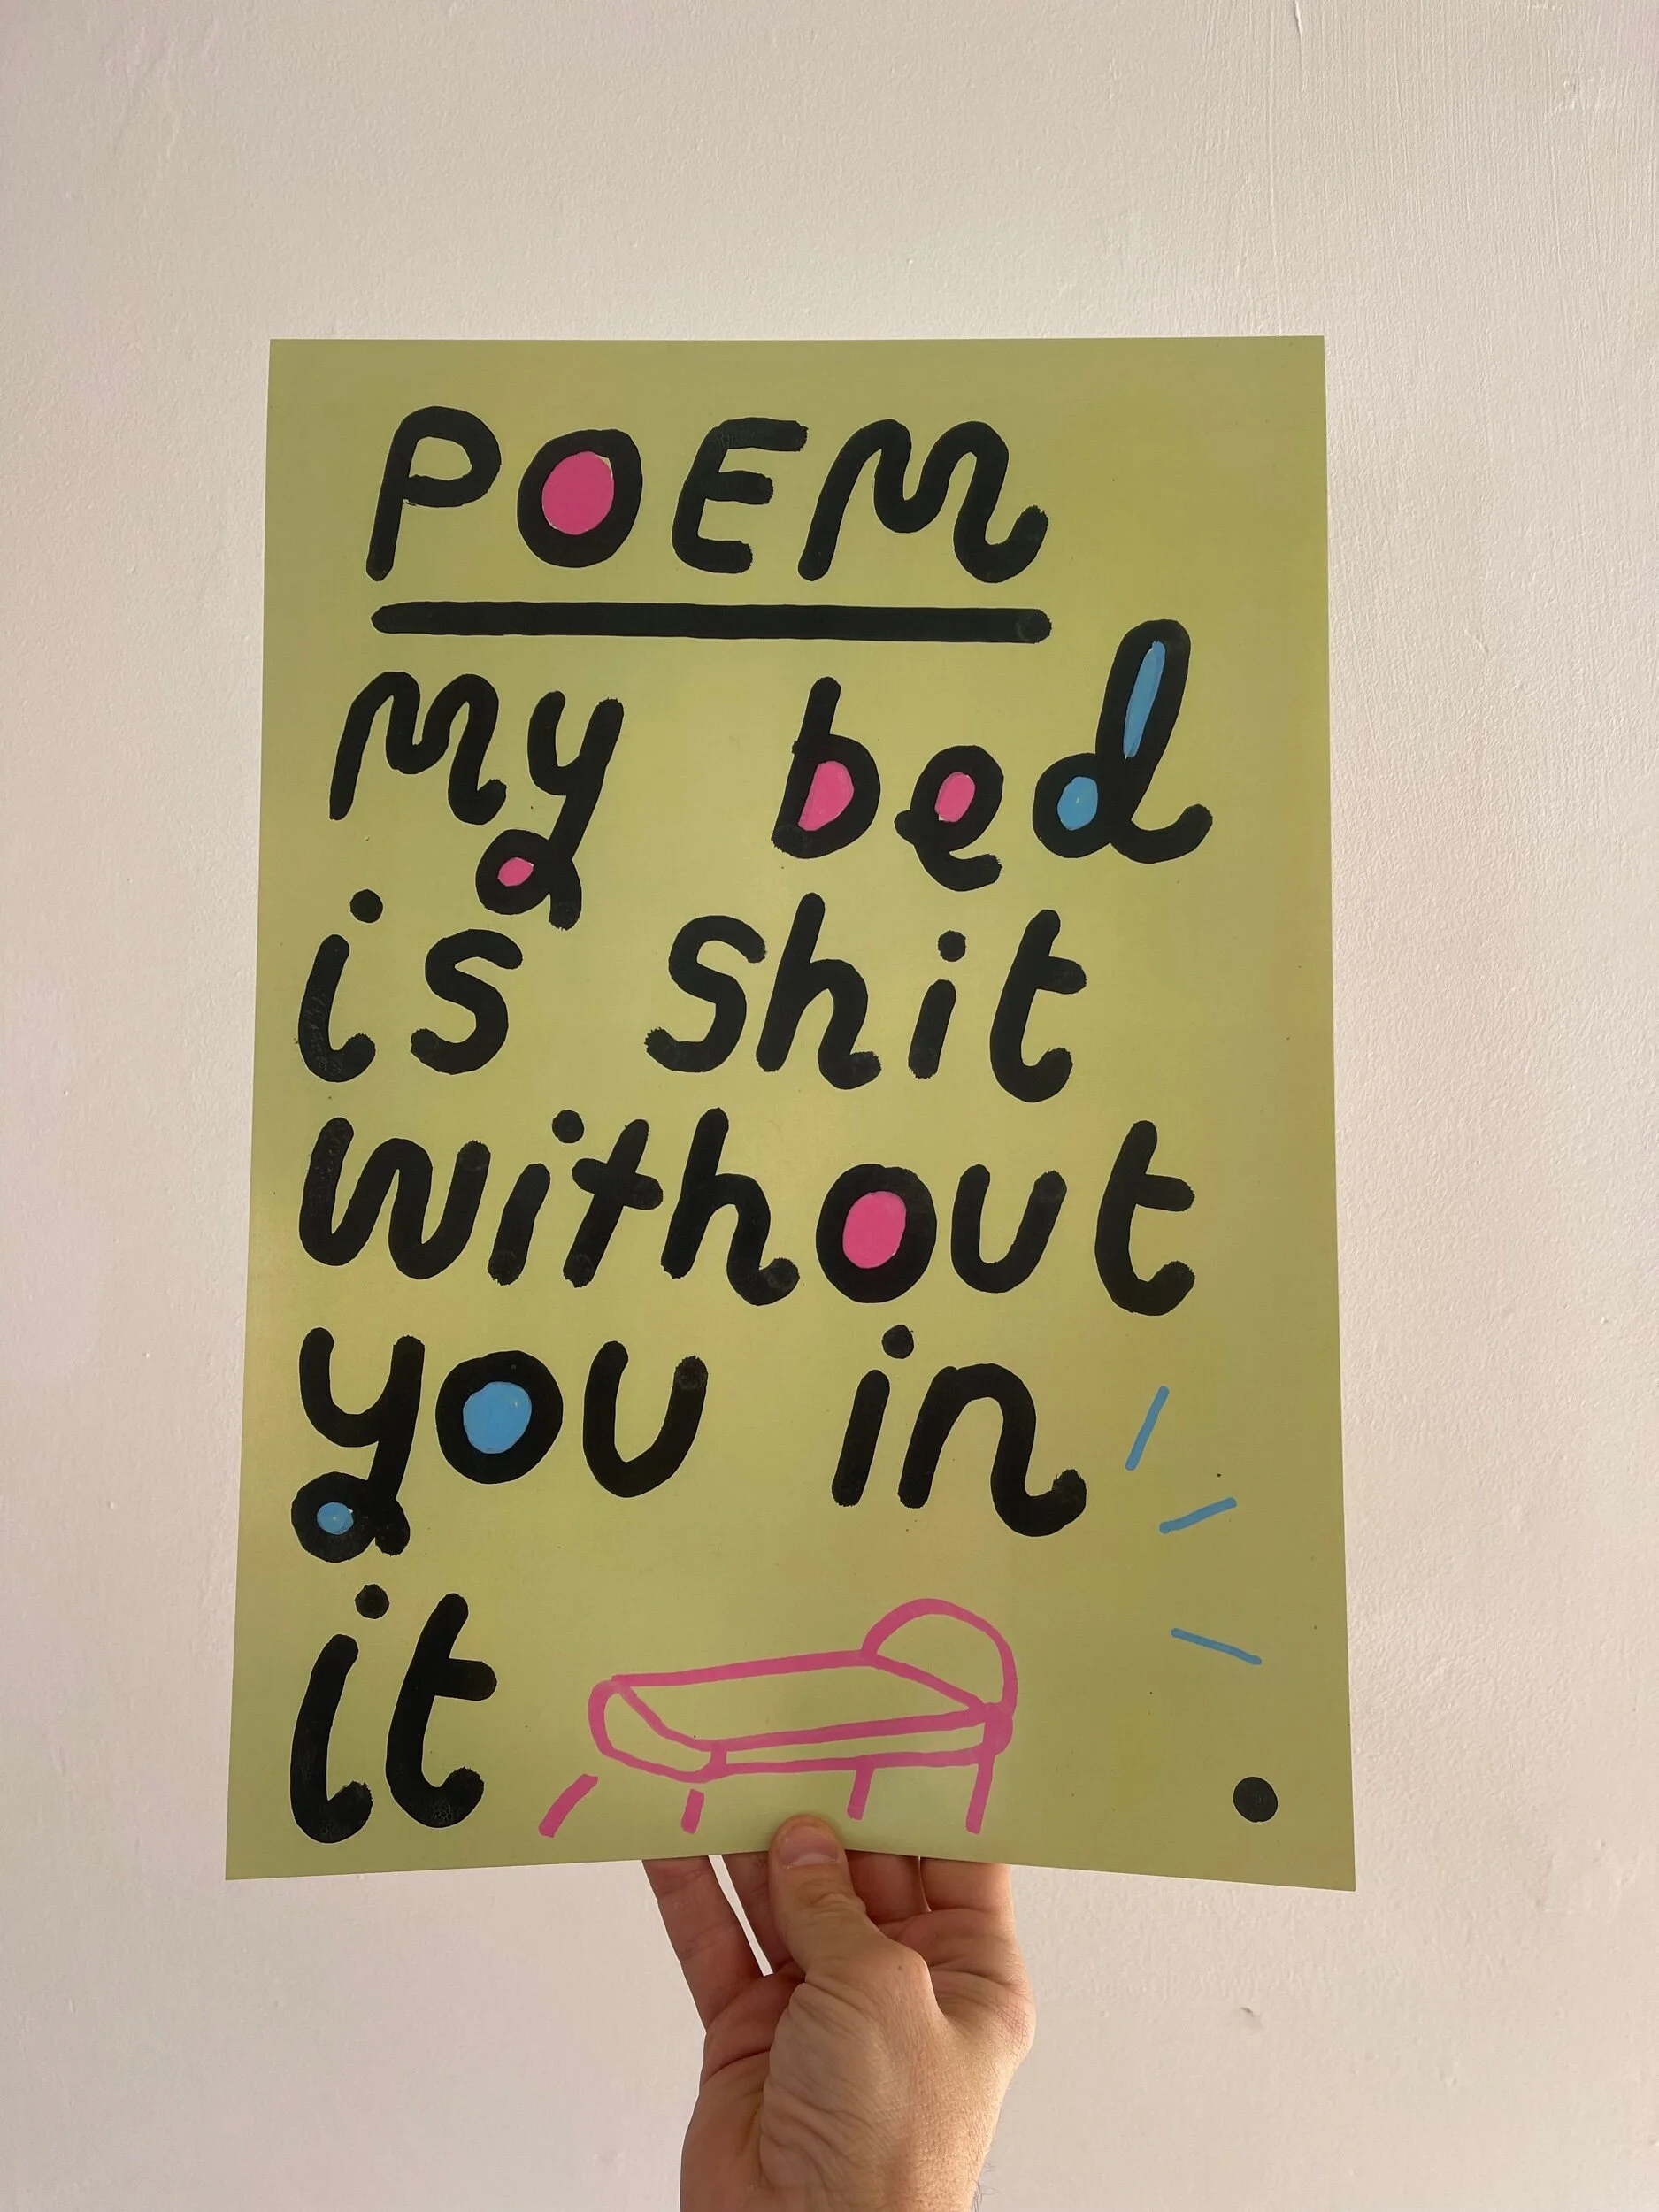 POEM
my bed
is shit
without
you in
it